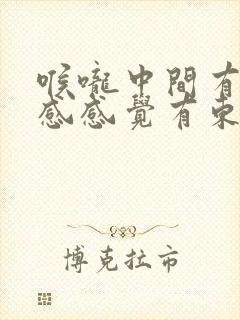 喉嚨中間有
感感覺有東
博克拉市